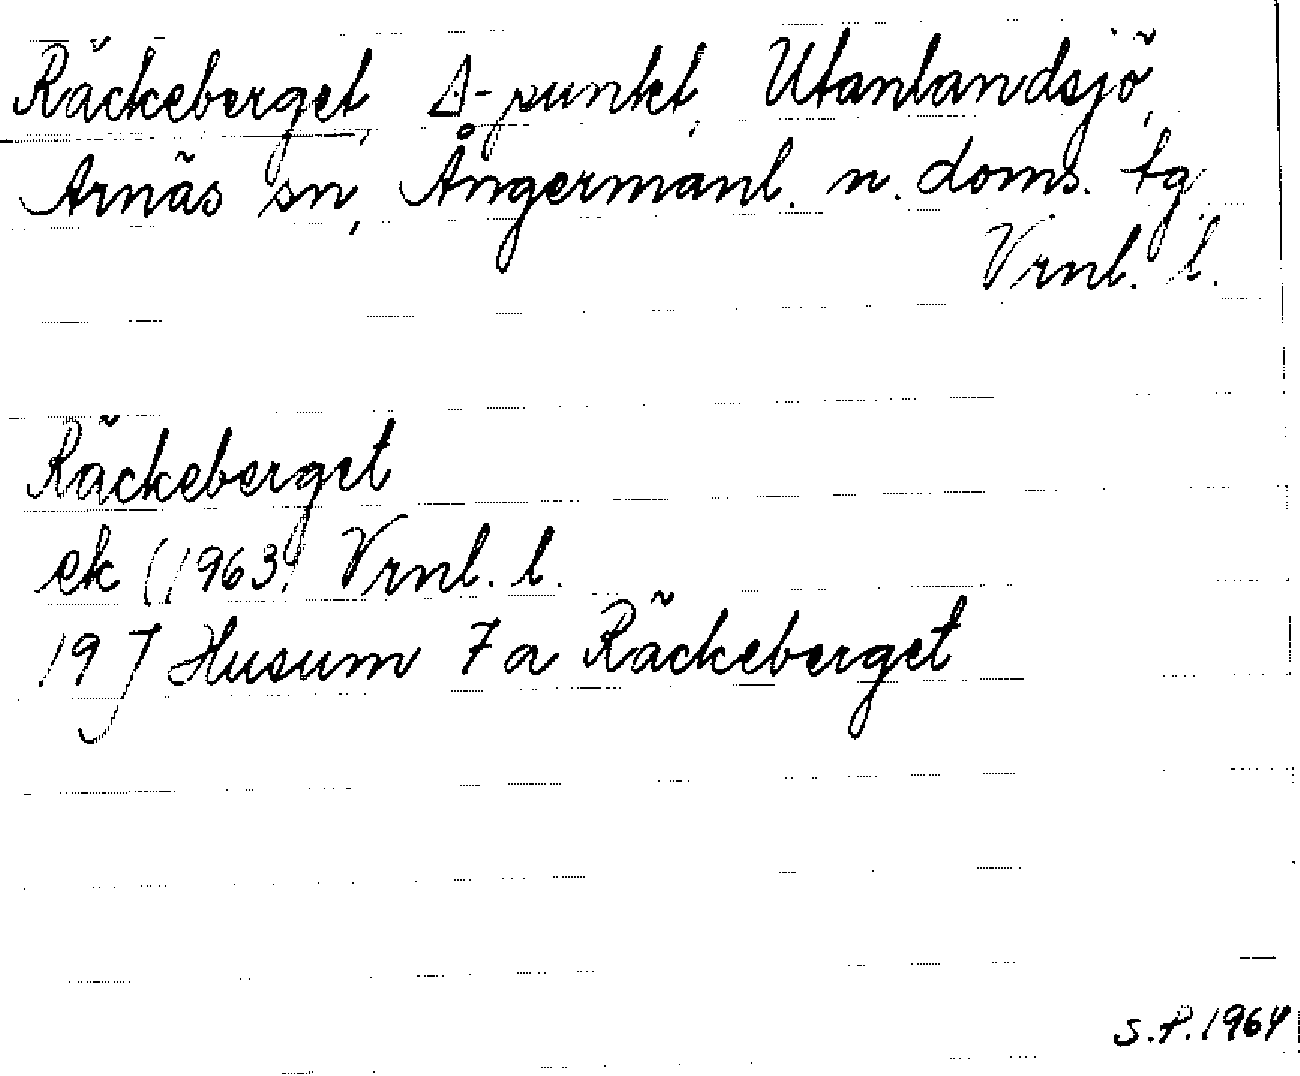 Räckeberget, Δ-punkt, Utanlandsjö,
Arnäs sn, Ångermanl. n. doms. tg
Vrnl. l.
Räckeberget
ek (1963) Vrnl. l.
19 J Husum 7 a Räckeberget
S.P. 1964